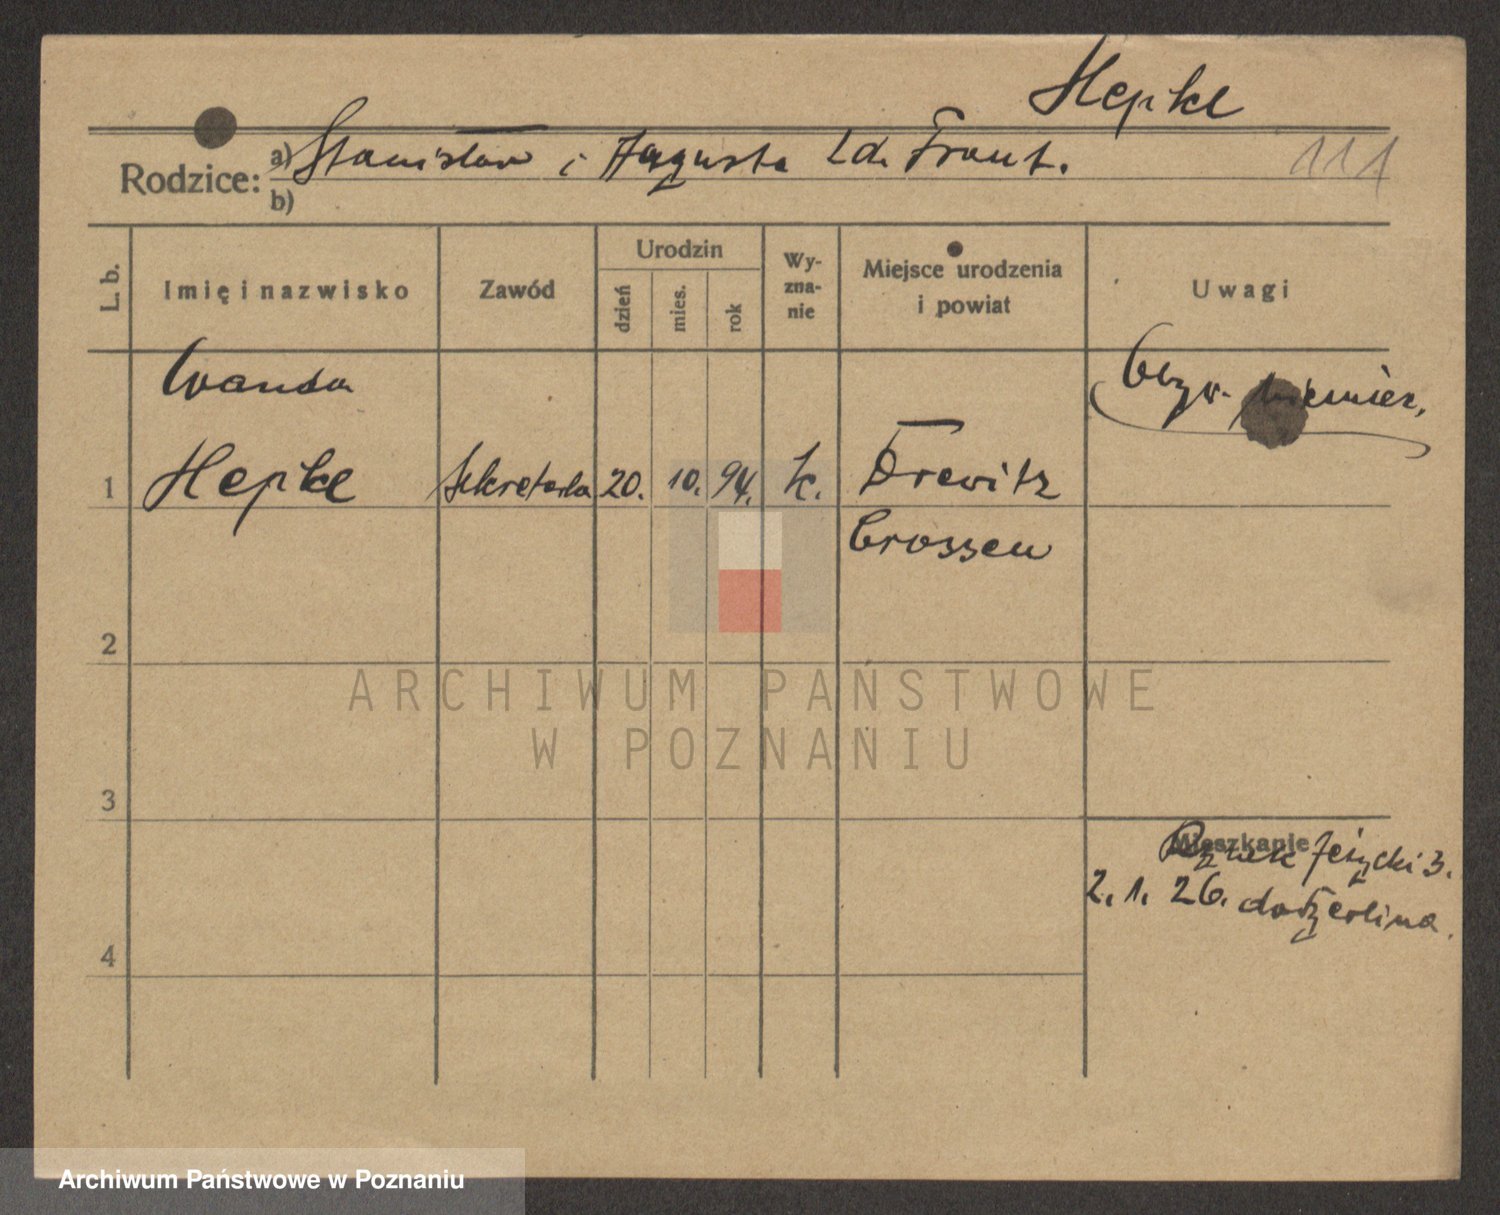 Hepke
Rodzice: a) Stanisław i Augusta zd. Frant.
111
b)
L. b.
Imię i nazwisko
Zawód
Urodzin
dzień
mies.
rok
Wy-
zna-
nie
Miejsce urodzenia
i powiat
Uwagi
Wanda
obyw. niemiec.
1 Hepke sekretarka 20. 10. 94. k. Drewitz
Crossen
2
ARCHIWUM PAŃSTWOWE
W POZNANIU
3
Mieszkanie
Rynek Jeżycki 3.
2. 1. 26. do Berlina.
4
Archiwum Państwowe w Poznaniu